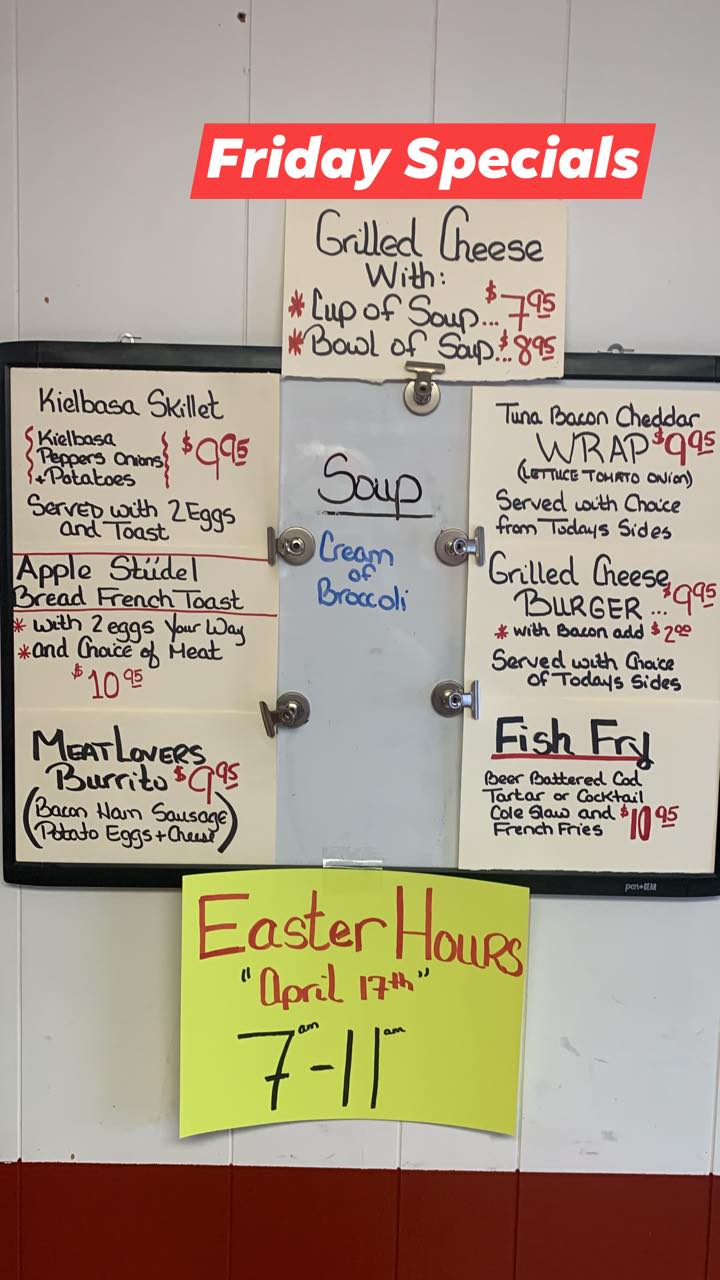 Friday Specials
Grilled Cheese
With:
* Cup of Soup... $7.95
* Bowl of Soup... $8.95
Kielbasa Skillet
Kielbasa
Peppers Onions
+ Potatoes
$9.95
Served with 2 Eggs
and Toast
Apple Stüdel
Bread French Toast
* with 2 eggs Your Way
* and Choice of Meat
$10.95
MEAT LOVERS
Burrito $9.95
(Bacon Ham Sausage
Potato Eggs + Cheese)
Soup
Cream
of
Broccoli
Tuna Bacon Cheddar
WRAP $9.95
(LETTUCE TOMATO ONION)
Served with Choice
from Todays Sides
Grilled Cheese
BURGER ... $9.95
* with Bacon add $2.00
Served with Choice
of Todays Sides
Fish Fry
Beer Battered Cod
Tartar or Cocktail
Cole Slaw and
French Fries
$10.95
pen+GEAR
Easter Hours
"April 17th"
7am-11am